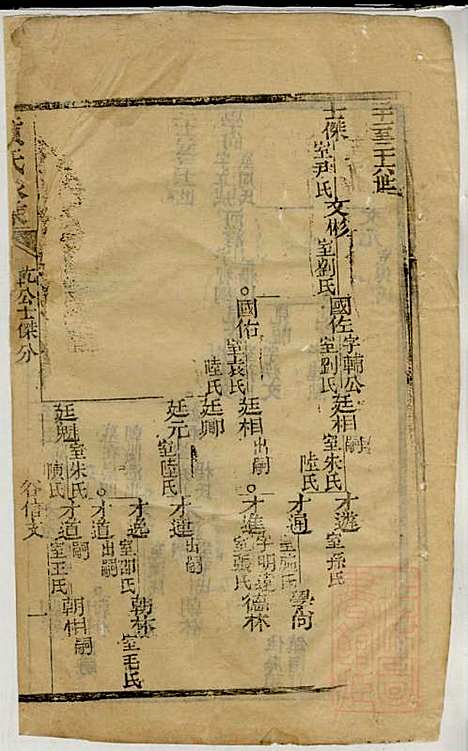 士傑 室尹氏 文彬 室劉氏 國佐 字輔公 室劉氏 廷相 嗣 室朱氏 陸氏 才遊 室孫氏
才通 室施氏 學尚
國佑 室袁氏 陸氏 廷相 出嗣 才進 字明達 室張氏 德林
廷卿
廷元 室陸氏 才連 出嗣
才逸 室邵氏 朝林 室毛氏
才道 出嗣
廷魁 室朱氏 陳氏 才道 嗣 室王氏 朝相 嗣
乾公士傑分
谷信支
一